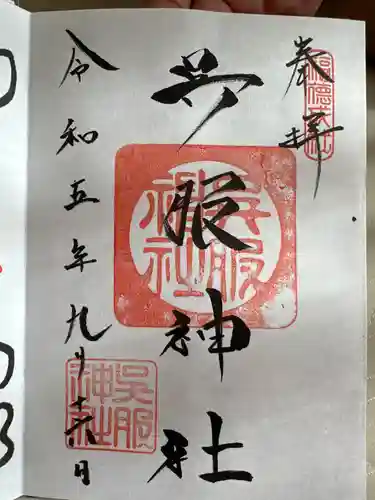 奉拝
呉服神社
呉服
神社
令和五年九月十六日
呉服
神社